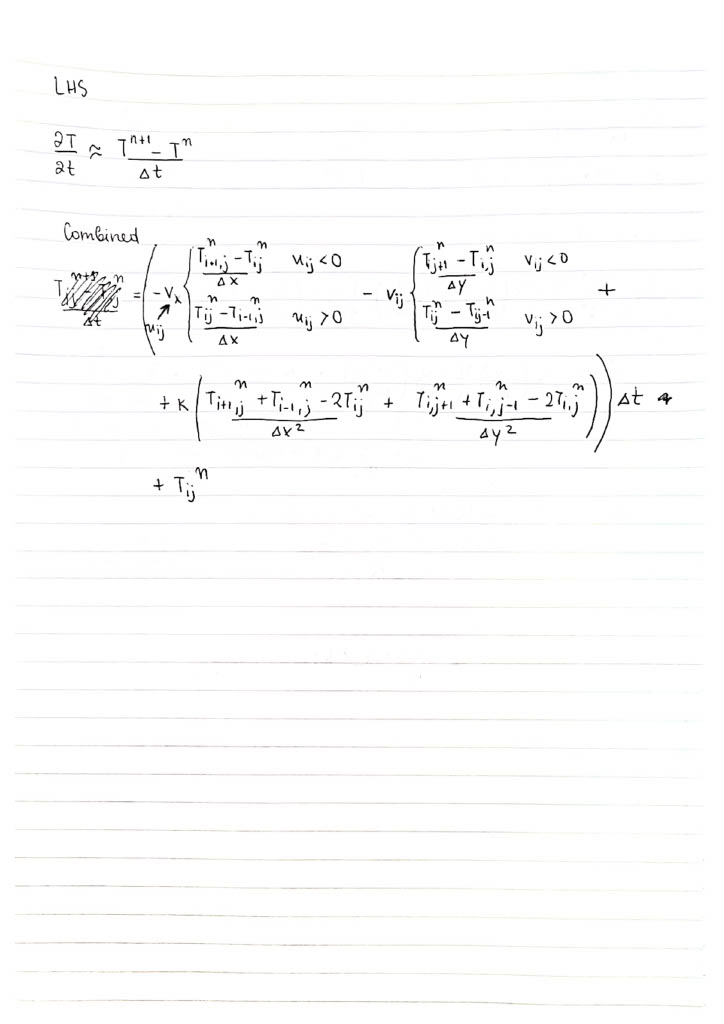 LHS
∂T/∂t ≈ (T^{n+1} - T^n)/Δt
Combined
T_{ij}^{n+1} = ( -V_x u_{ij} { (T_{i+1,j}^n - T_{ij}^n)/Δx u_{ij} < 0 ; (T_{ij}^n - T_{i-1,j}^n)/Δx u_{ij} > 0 - v_{ij} { (T_{ij+1}^n - T_{i,j}^n)/Δy v_{ij} < 0 ; (T_{ij}^n - T_{ij-1}^n)/Δy v_{ij} > 0 +
+ K ( (T_{i+1,j}^n + T_{i-1,j}^n - 2T_{ij}^n)/Δx^2 + (T_{i,j+1}^n + T_{i,j-1}^n - 2T_{i,j}^n)/Δy^2 ) ) Δt +
+ T_{ij}^n